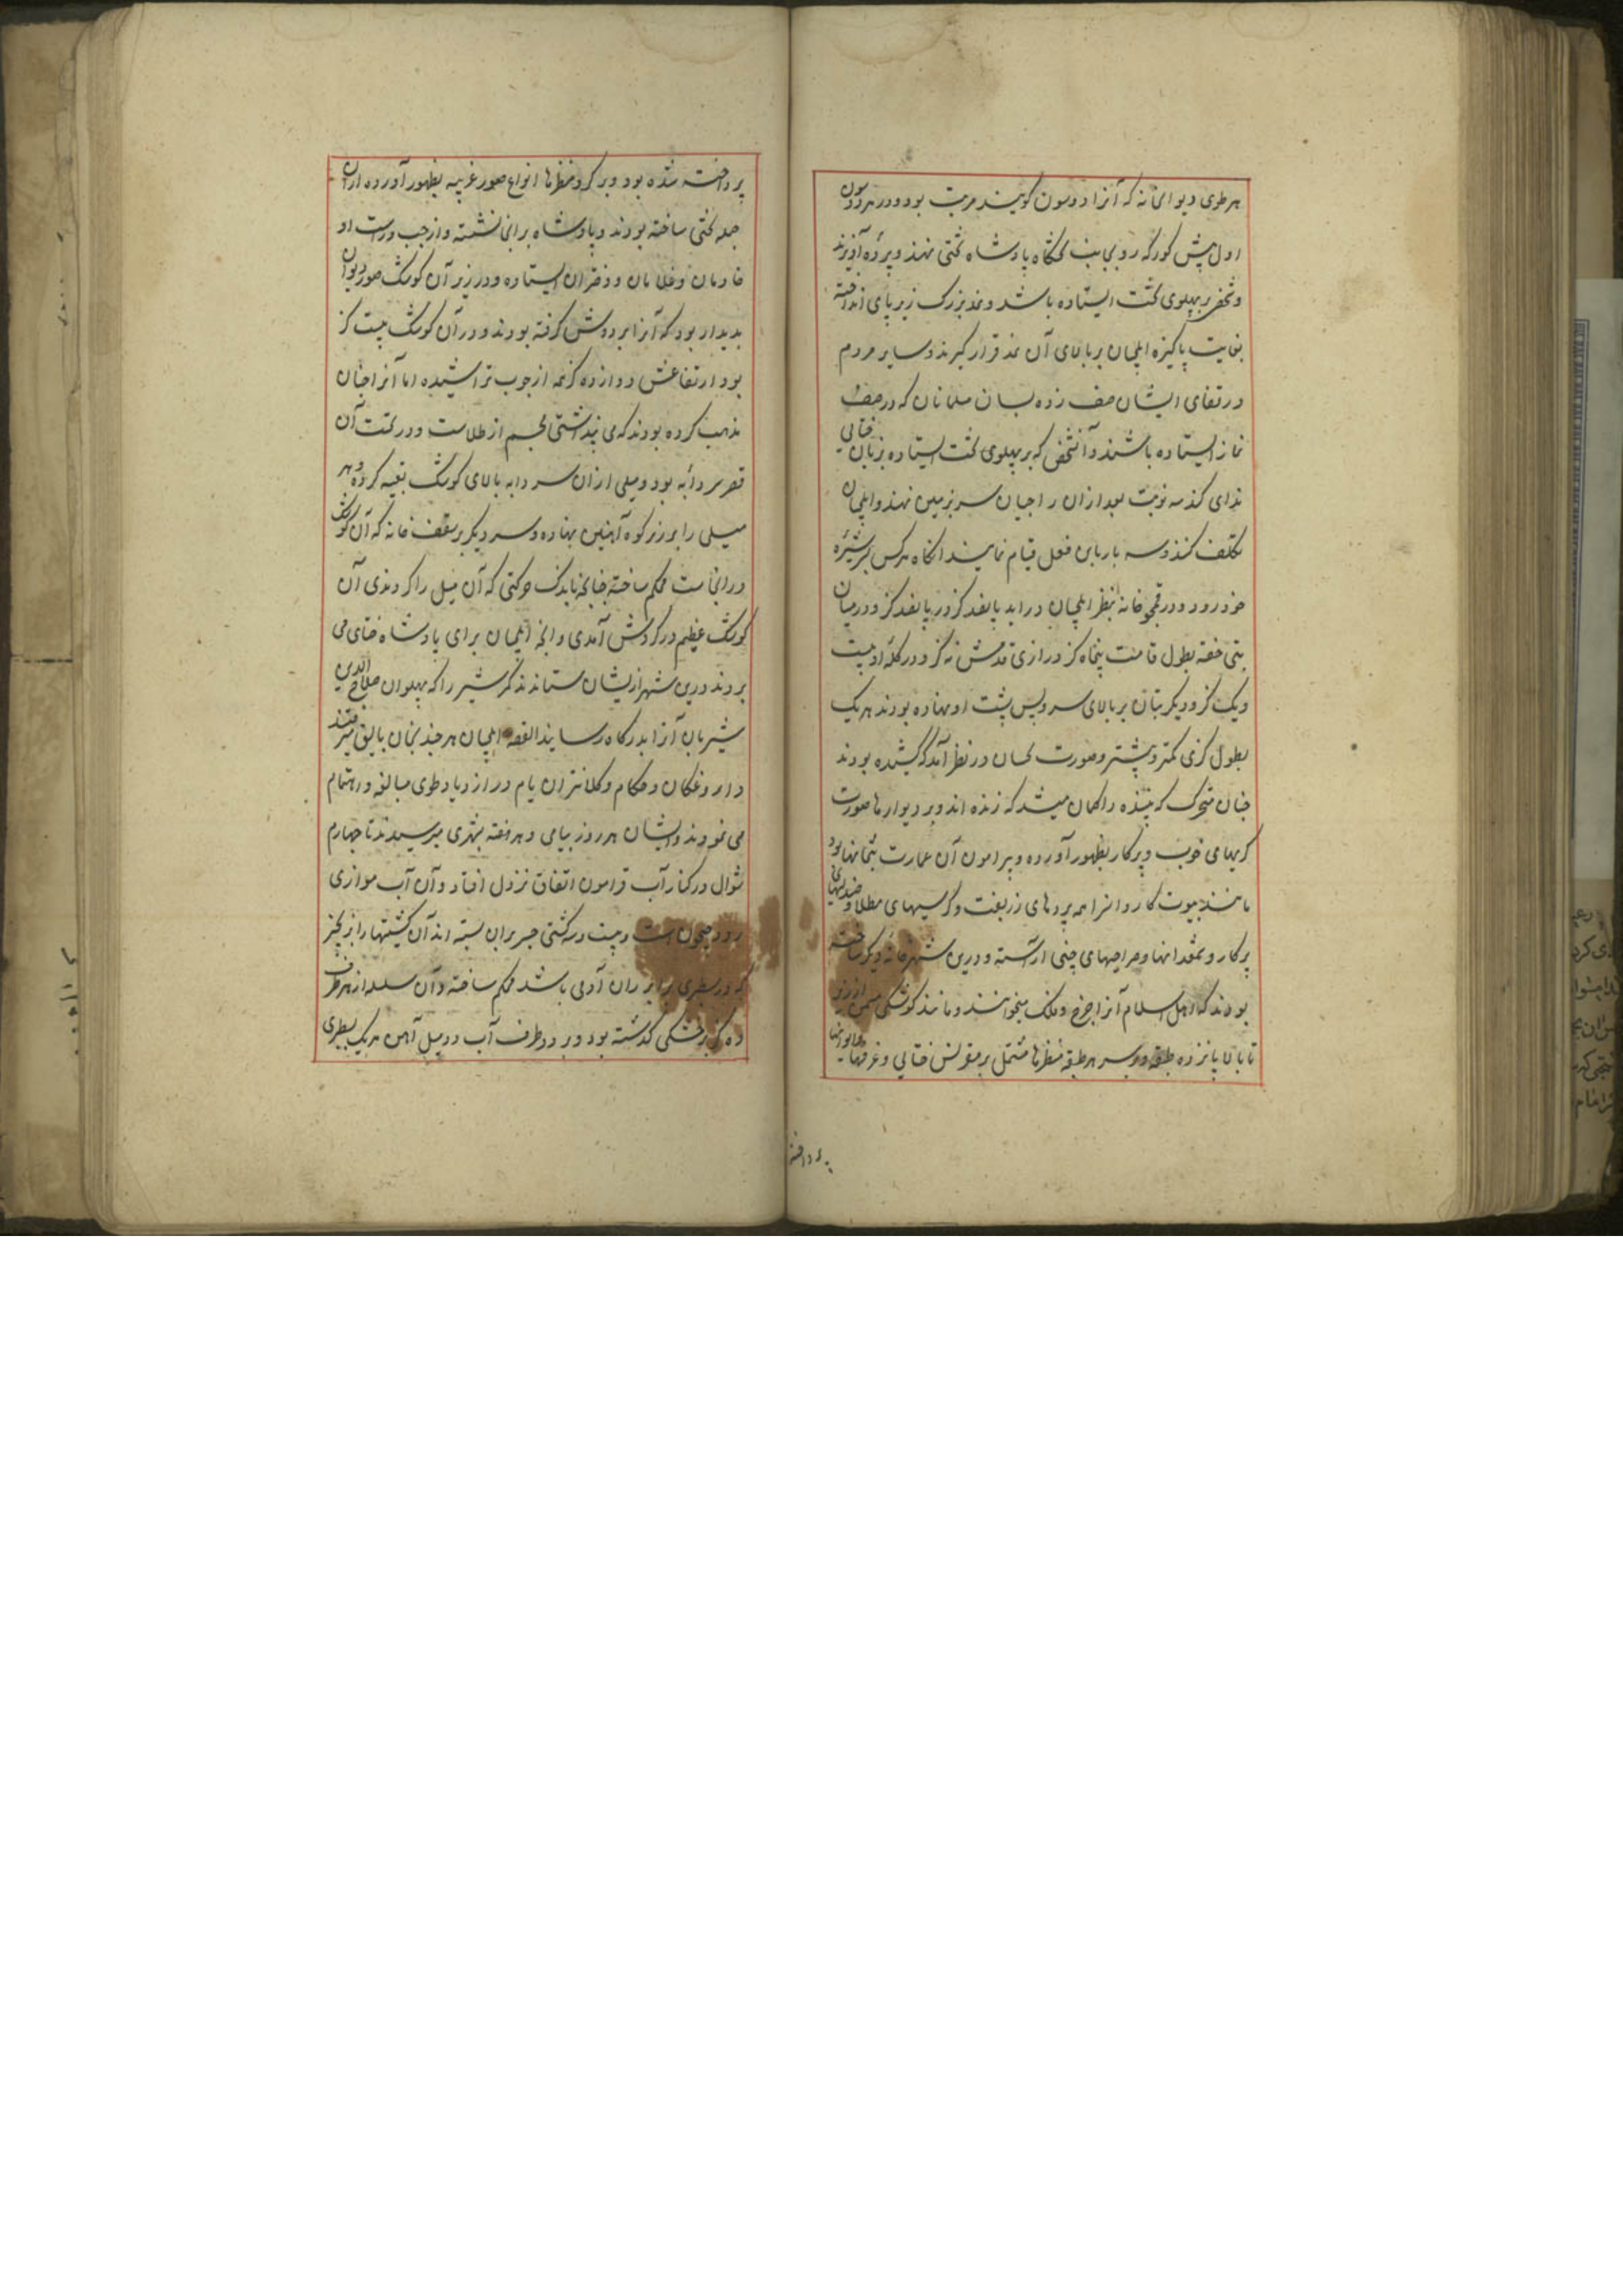 هر طوی دیوانخانه که آنرا دوسون کویند مرتب بود و در هر دوسون
اول پیش کورکه روبجانب تختگاه پادشاه تختی نهند و پرده آویزند
و شخصی بر پهلوی تخت ایستاده باشد و نمد بزرک زیر پای انداخته
بغایت پاکیزه ایلچیان بر بالای آن نمد قرار کیرند و سایر مردم
در قفای ایشان صف زده بسان مسلمانان که در صف
نماز ایستاده باشند و آنشخص که بر پهلوی تخت ایستاده بزبان ختایی
ندای کند سه نوبت بعد ازان راجیان سر بزمین نهند و ایلچیان
تکلف کنند و سه بار باین فعل قیام نمایند انکاه هرکس بر سر شیره
خود رود و در قمجو خانهٔ بنظر ایلچیان در آید پانصد کز در پانصد کز و در میان
بتی خفته بطول قامت پنجاه کز درازی قدمش نه کز و در کلهٔ او بیست
و یک کز و دیکر بتان بر بالای سر و پس پشت او نهاده بودند هر یک
بطول کزی کمتر و بیشتر و صورت نحسان در نظر آمد که کشیده بودند
چنان متحرک که بیننده را کمان میشد که زنده اند و بر دیوارها صورت
کریهای خوب و پرکار بظهور آورده و پیرامون آن عمارت بتخانها بود
مانند بیوت کاروانسرا همه پردهای زربفت و کرسیهای مطلا و صندلیهای
پرکار و شمعدانها و صراحیهای چینی آراسته و درین شهر خانهٔ دیکر ساخته
بودند که اهل اسلام آنرا چرخ فلک میخوانند و مانند کوشکی مثمن از زیر
تا بالا پانزده طبقه و در سر هر طبقه منظرها مشتمل بر مقرنس ختایی و غرفها و ایوانها
پرداخته
پرداخته شده بود و بر کرد منظرها انواع صور غریبه بظهور آورده ازان
جمله تختی ساخته بودند و پادشاه برانجا نشسته و از چپ و راست او
خادمان و غلامان و دختران ایستاده و در زیر آن کوشک صور دیوان
پدیدار بود که آنرا بر دوش کرفته بودند و در آن کوشک بیست کز
بود ارتفاعش دوازده کز همه از چوب تراشیده اما آنرا چنان
مذهب کرده بودند که می پنداشتی مجسم از طلاست و در تحت آن
قصر سردابه بود و میلی ازان سردابه بالای کوشک تعبیه کرده و سر
میلی را بر زبر کوه آهنین نهاده و سر دیکر بر سقف خانه که آن کوشک
در انجاست محکم ساخته چنانچه باندک حرکتی که آن میل را کردندی آن
کوشک عظیم در کردش آمدی و انچه ایلچیان برای پادشاه ختای می
بردند درین شهر ازیشان ستاندند مکر شیر را که پهلوان صلاح الدین
شیربان آنرا بدرکاه رسانید القصه ایلچیان هر چند بخان بالیق میرفتند
داروغکان و حکام و کلانتران یام در ازدیاد طوی مبالغه و اهتمام
می نمودند و ایشان هر روز بیامی و هر هفته بشهری میرسیدند تا چهارم
شوال در کنار آب قراموران اتفاق نزول افتاد و آن آب موازی
رود جیحون است و بیست و سه کشتی جسر بران بسته اند آن کشتیها را بزنجیر
که در سطبری برابر ران آدمی باشد محکم ساخته و آن سلسله از هر طرف
ده کز بر خشکی کذشته بود و بر دو طرف آب دو میل آهن هر یک بسطبری